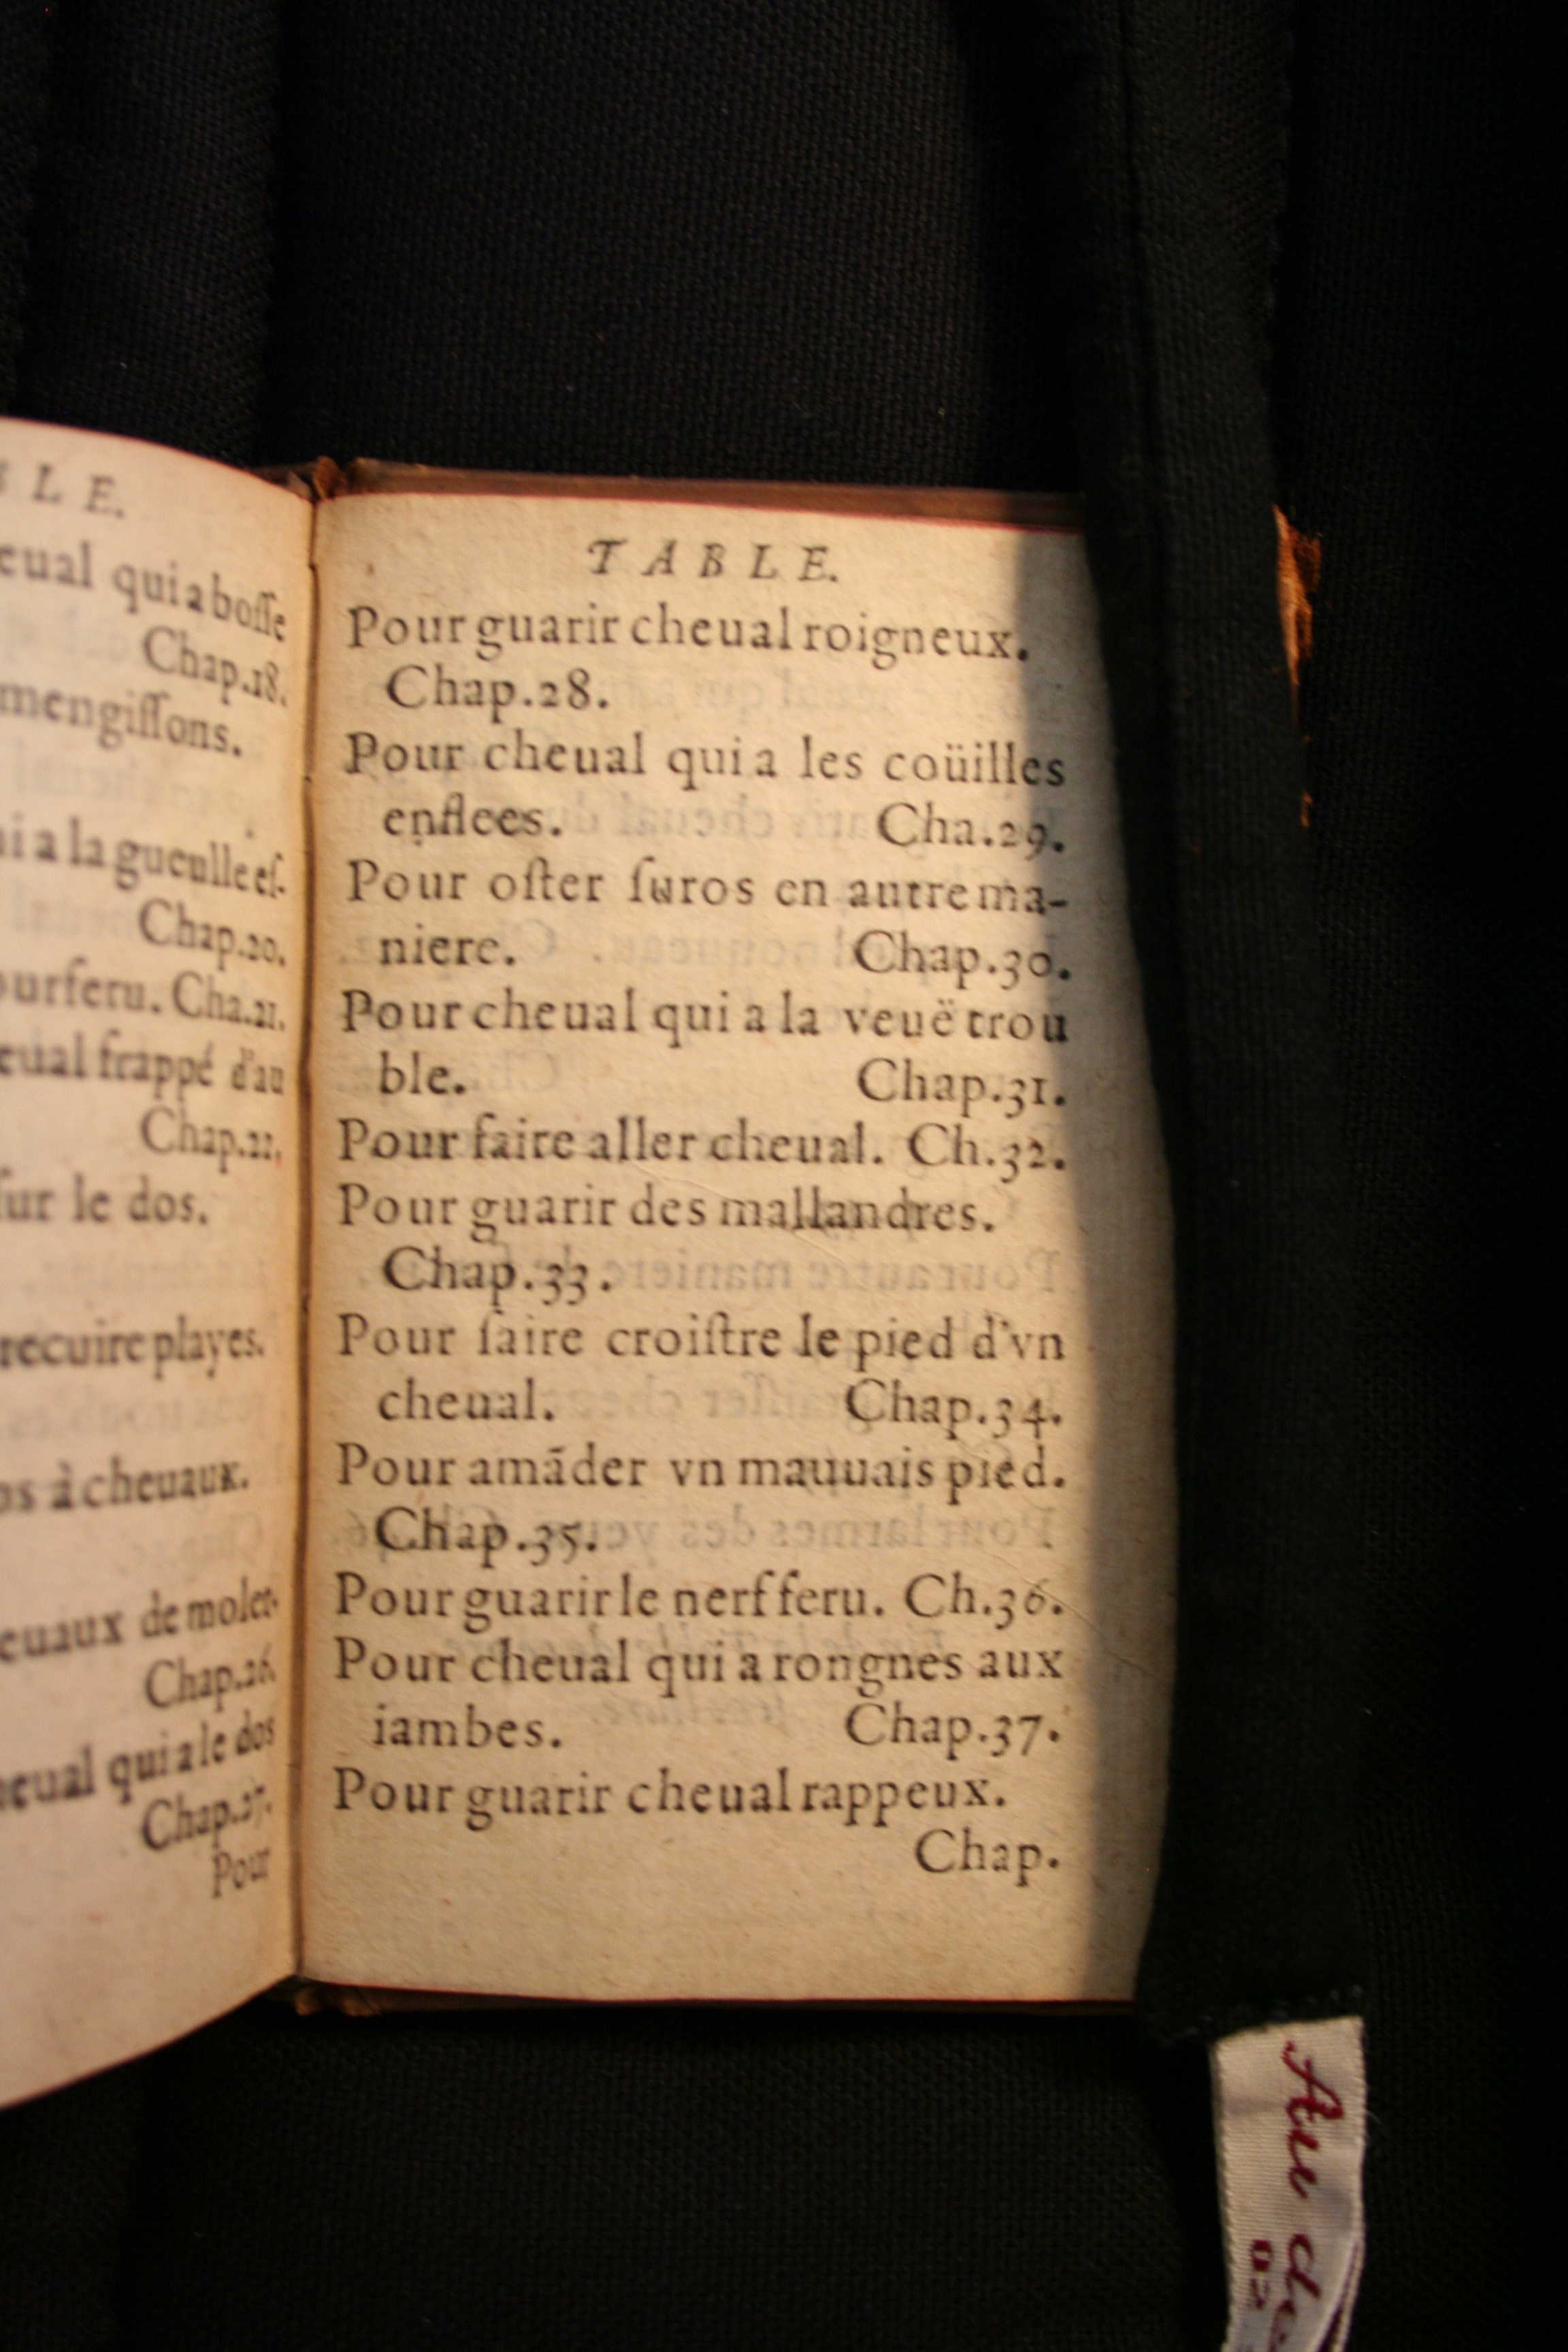 LE.
eual qui a boſſe
Chap.18.
mengiſſons.
i a la gueulle eſ-
Chap.20.
ourferu. Cha.21.
eual frappé d'au
Chap.22.
ſur le dos.
recuire playes.
os à cheuaux.
euaux de molet-
Chap.26.
heual qui a le dos
Chap.27.
Pour
TABLE.
Pour guarir cheual roigneux.
Chap.28.
Pour cheual qui a les coüilles
enflees. Cha.29.
Pour oſter ſuros en autre ma-
niere. Chap.30.
Pour cheual qui a la veuë trou
ble. Chap.31.
Pour faire aller cheual. Ch.32.
Pour guarir des mallandres.
Chap.33.
Pour faire croiſtre le pied d'vn
cheual. Chap.34.
Pour amãder vn mauuais pied.
Chap.35.
Pour guarir le nerf feru. Ch.36.
Pour cheual qui a rongnes aux
iambes. Chap.37.
Pour guarir cheual rappeux.
Chap.
Au de
02